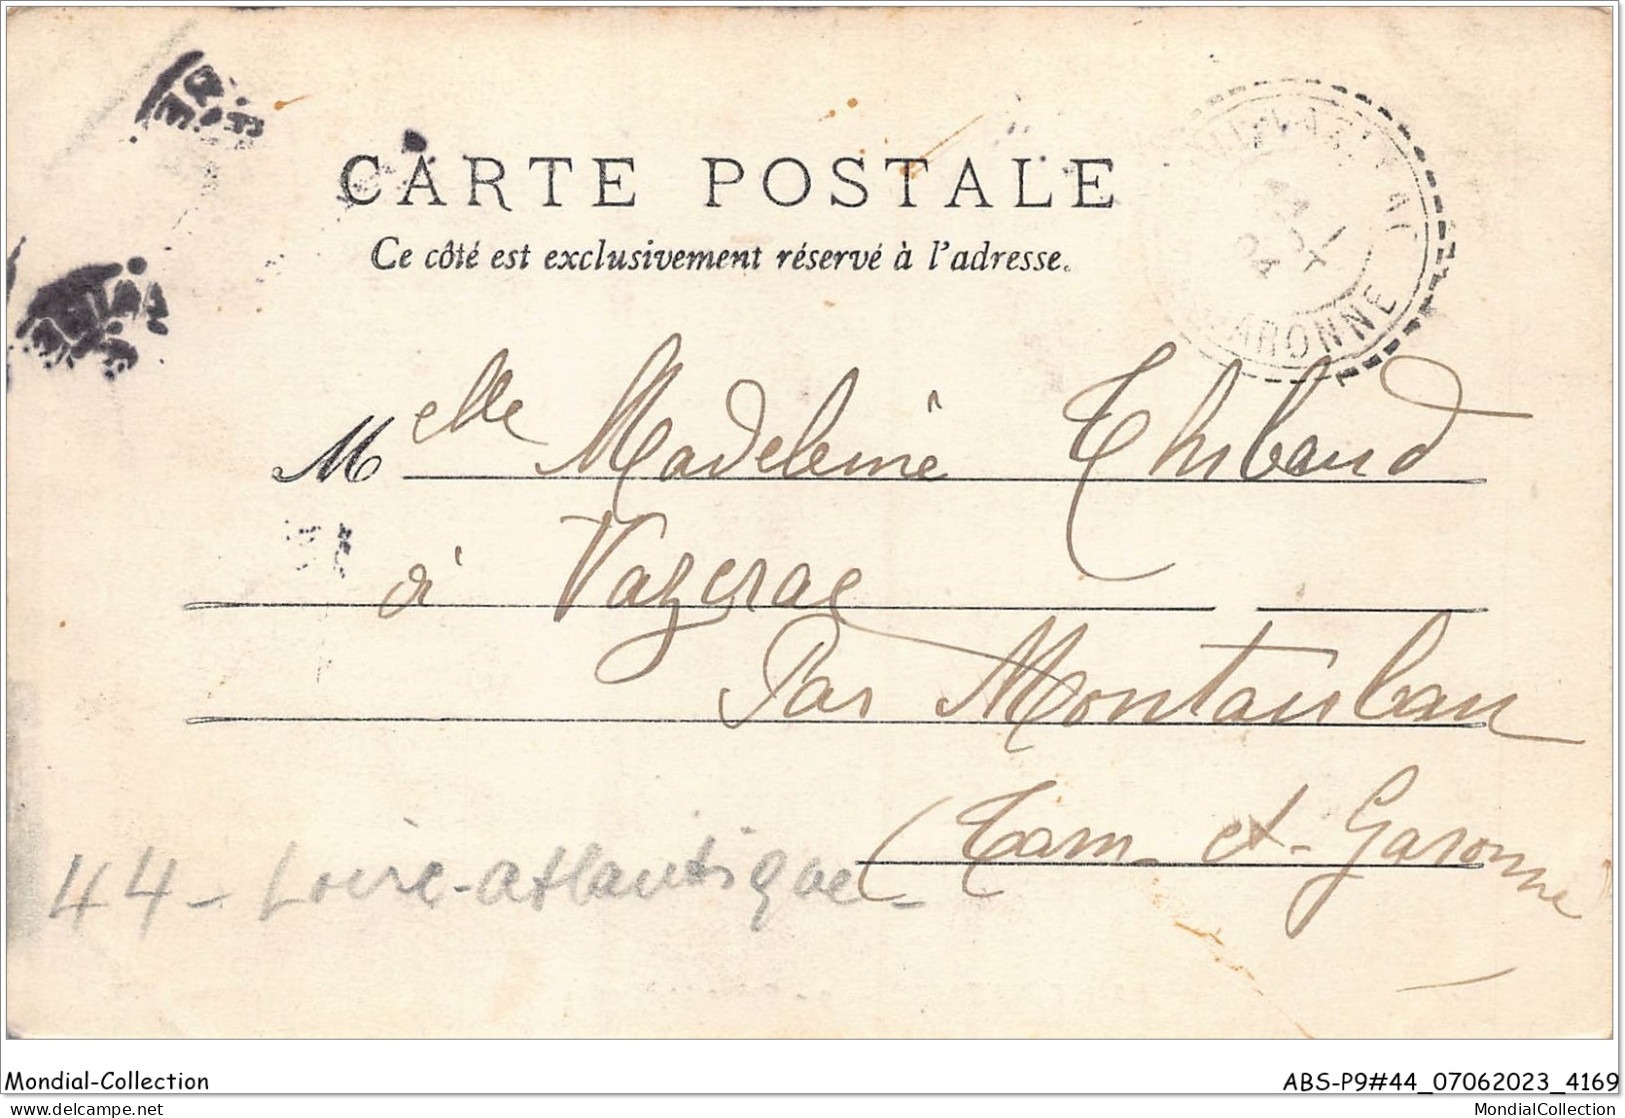 CARTE POSTALE
Ce côté est exclusivement réservé à l'adresse.
GARONNE
Melle Madeleine Thibaud
à Vazerac
Par Montauban
(Tarn-et-Garonne
44 - Loire-atlantique -
Mondial-Collection
ABS-P9#44_07062023_4169
delcampe.net
MondialCollection